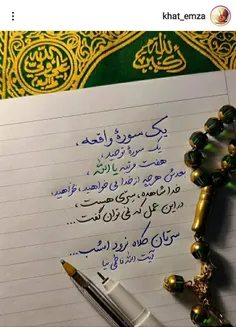 khat_emza
یک سورهٔ واقعه،
یک سورهٔ توحید،
هفت مرتبه یا الله،
بعدش هرچیز از خدا می‌خواهید، بخواهید.
خدا شاهده، سِرّی هست،
در این عمل که نمی‌توان گفت...
سرتان کلاه نرود امشب...
آیت الله فاطمی نیا